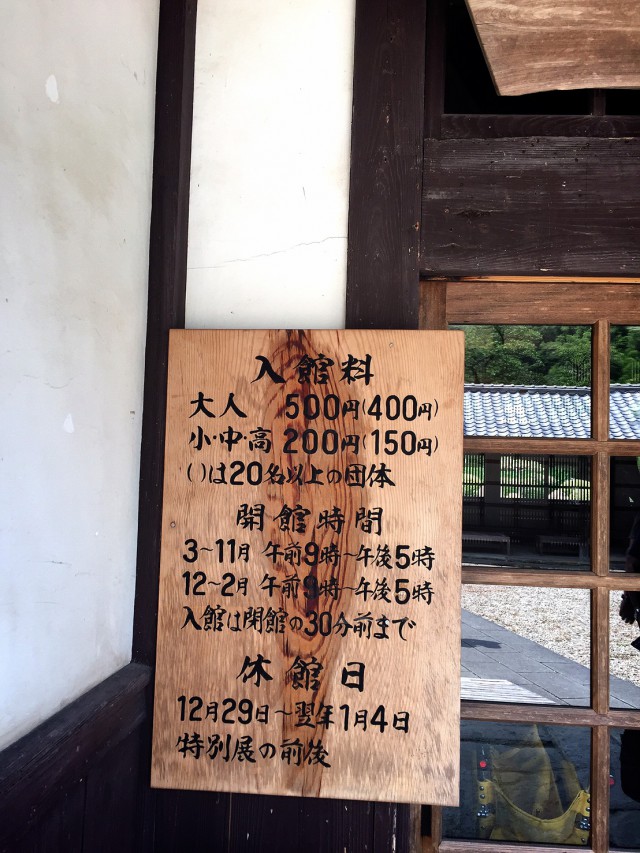 入館料
大人 500円(400円)
小・中・高 200円(150円)
( )は20名以上の団体
開館時間
3～11月 午前9時～午後5時
12～2月 午前9時～午後5時
入館は閉館の30分前まで
休館日
12月29日～翌年1月4日
特別展の前後